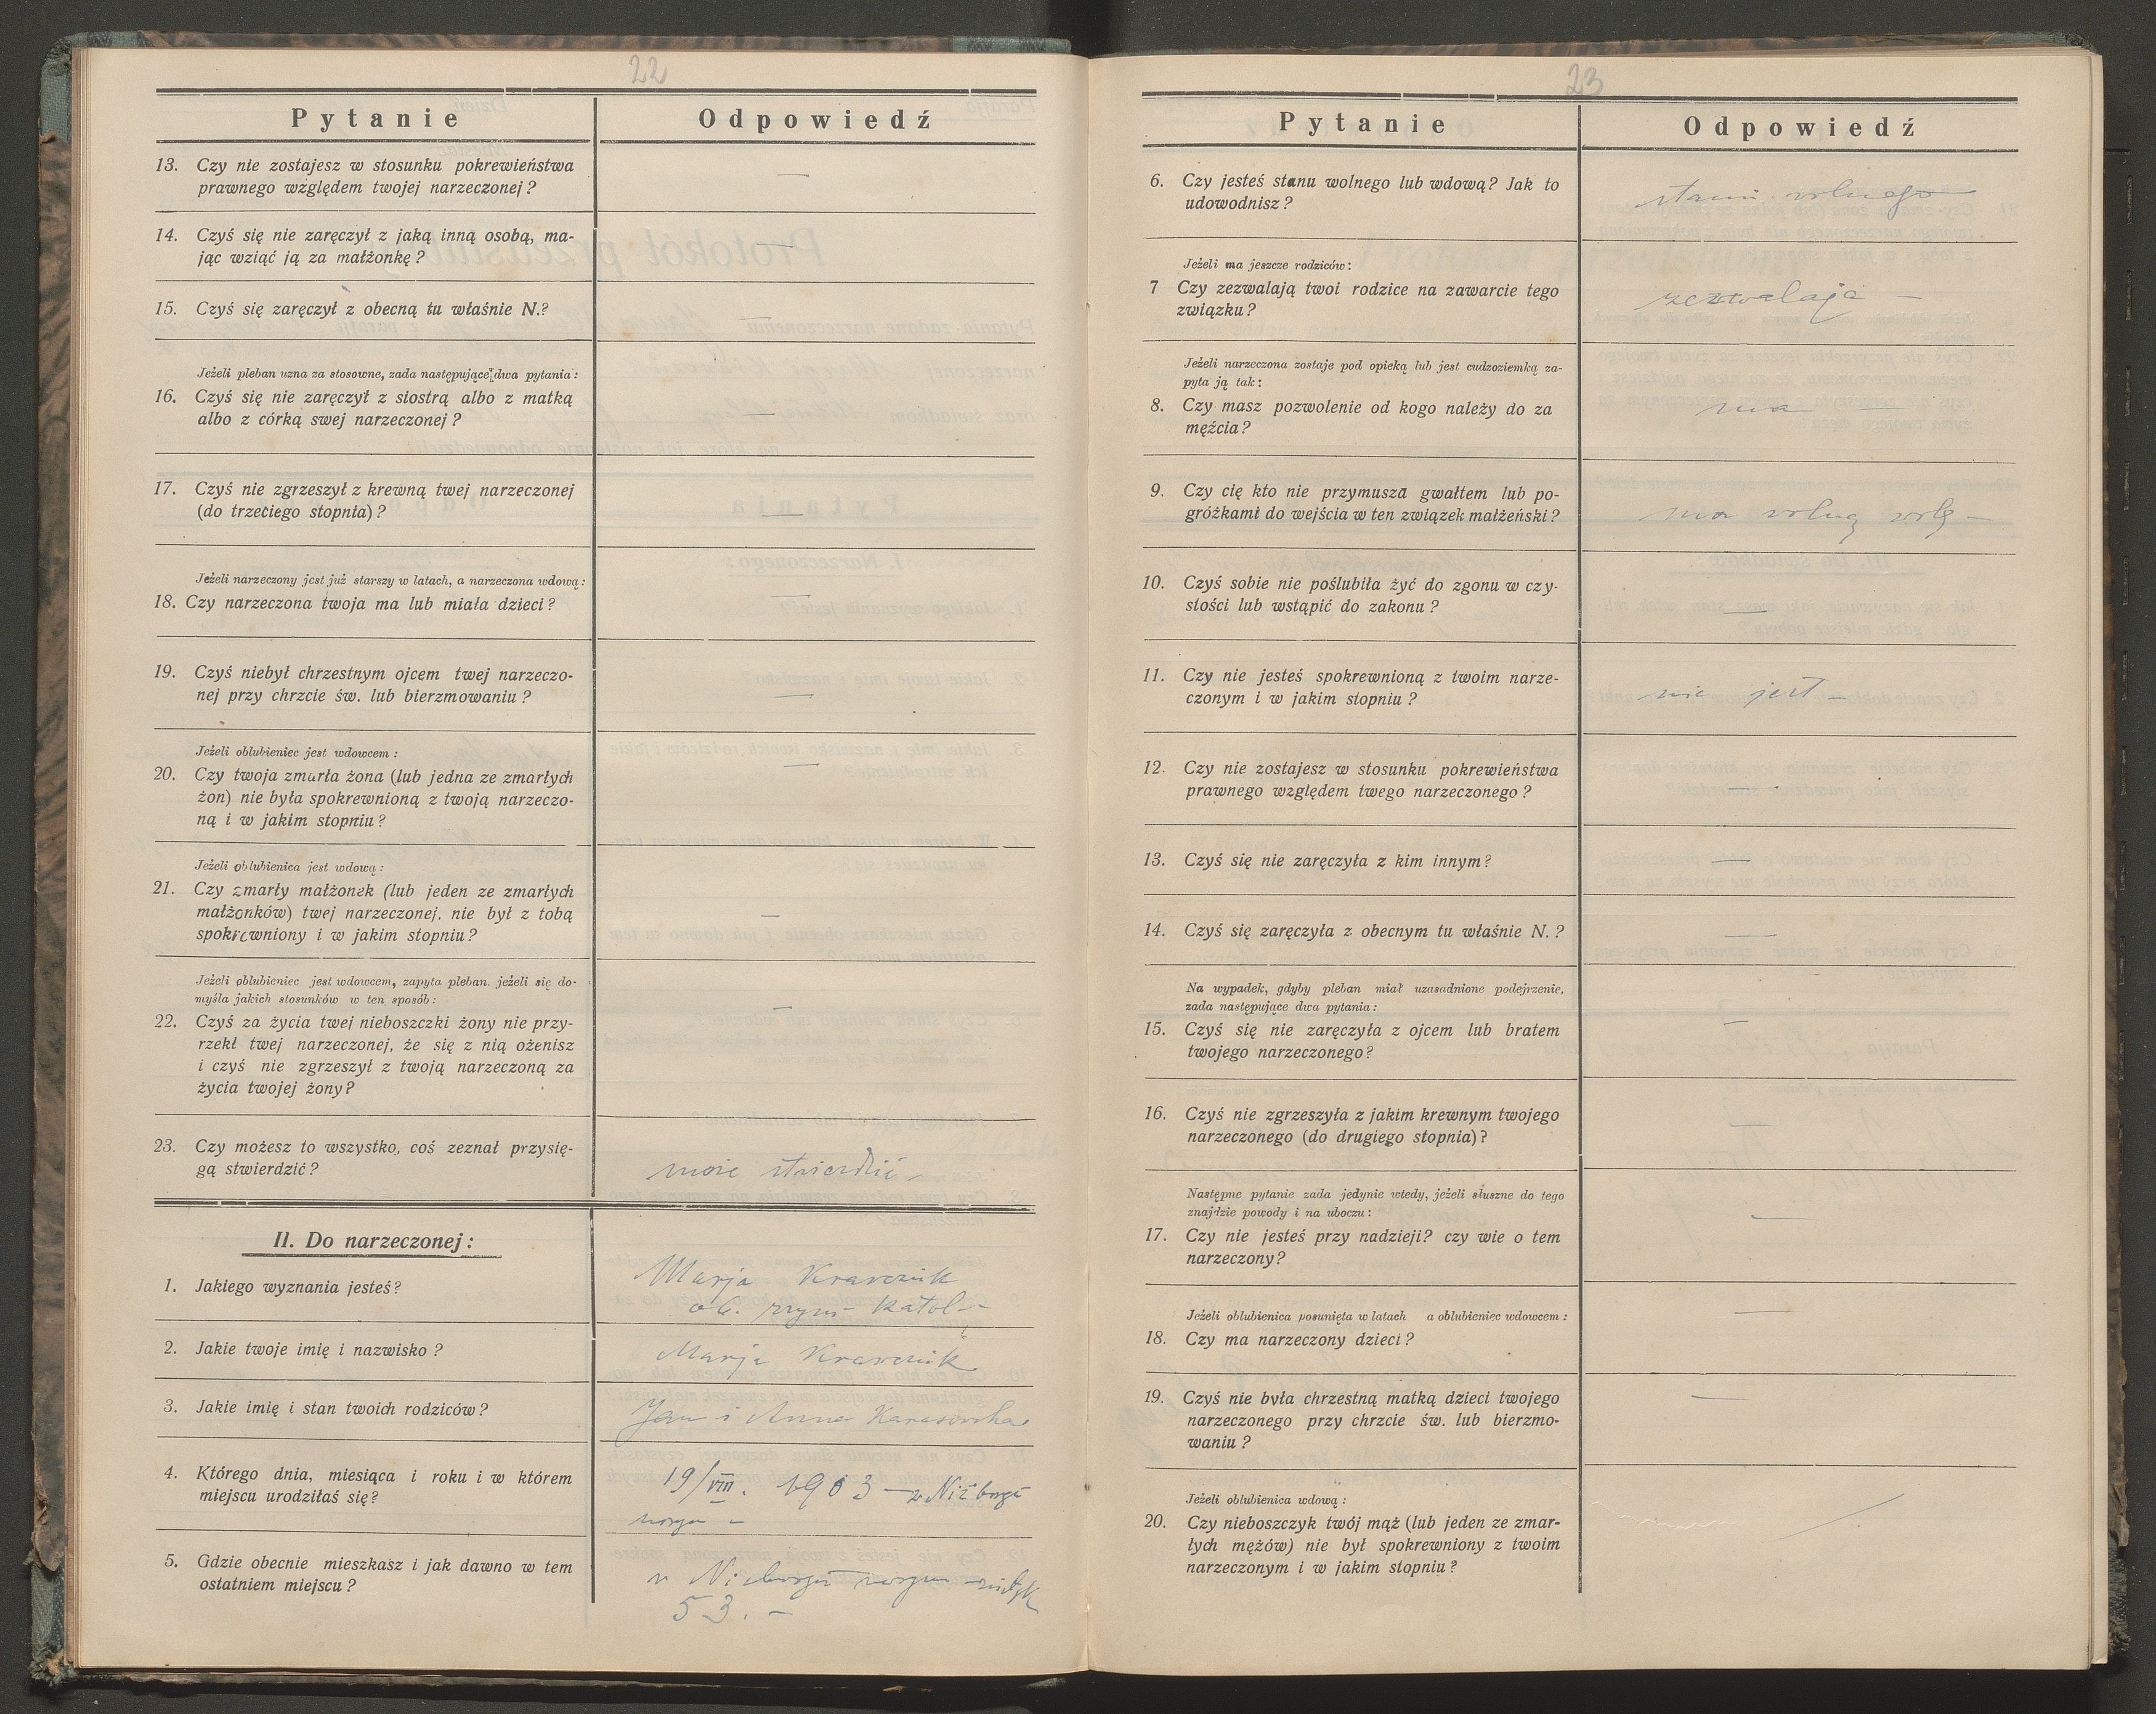 22
Pytanie
Odpowiedź
13. Czy nie zostajesz w stosunku pokrewieństwa
prawnego względem twojej narzeczonej?
—
14. Czyś się nie zaręczył z jaką inną osobą, ma-
jąc wziąć ją za małżonkę?
—
15. Czyś się zaręczył z obecną tu właśnie N.?
—
Jeżeli pleban uzna za stosowne, zada następujące dwa pytania:
16. Czyś się nie zaręczył z siostrą albo z matką
albo z córką swej narzeczonej?
—
17. Czyś nie zgrzeszył z krewną twej narzeczonej
(do trzeciego stopnia)?
—
Jeżeli narzeczony jest już starszy w latach, a narzeczona wdową:
18. Czy narzeczona twoja ma lub miała dzieci?
—
19. Czyś niebył chrzestnym ojcem twej narzeczo-
nej przy chrzcie św. lub bierzmowaniu?
—
Jeżeli oblubieniec jest wdowcem:
20. Czy twoja zmarła żona (lub jedna ze zmarłych
żon) nie była spokrewnioną z twoją narzeczo-
ną i w jakim stopniu?
—
Jeżeli oblubienica jest wdową:
21. Czy zmarły małżonek (lub jeden ze zmarłych
małżonków) twej narzeczonej, nie był z tobą
spokrewniony i w jakim stopniu?
—
Jeżeli oblubieniec jest wdowcem, zapyta pleban. jeżeli się do-
myśla jakich stosunków w ten sposób:
22. Czyś za życia twej nieboszczki żony nie przy-
rzekł twej narzeczonej, że się z nią ożenisz
i czyś nie zgrzeszył z twoją narzeczoną za
życia twojej żony?
—
23. Czy możesz to wszystko, coś zeznał przysię-
gą stwierdzić?
może stwierdzić —
II. Do narzeczonej:
1. Jakiego wyznania jesteś?
Marja Krawczuk
ob. rzym- katol-
2. Jakie twoje imię i nazwisko?
Marja Krawczuk
3. Jakie imię i stan twoich rodziców?
Jan i Anna Karasowska
4. Którego dnia, miesiąca i roku i w którem
miejscu urodziłaś się?
19/VIII. 1903 — w Niżborgu
nowym —
5. Gdzie obecnie mieszkasz i jak dawno w tem
ostatniem miejscu?
w Niżborgu nowym
53. —
23
Pytanie
Odpowiedź
6. Czy jesteś stanu wolnego lub wdową? Jak to
udowodnisz?
stanu wolnego
Jeżeli ma jeszcze rodziców:
7 Czy zezwalają twoi rodzice na zawarcie tego
związku?
zezwalają —
Jeżeli narzeczona zostaje pod opieką lub jest cudzoziemką za-
pyta ją tak:
8. Czy masz pozwolenie od kogo należy do za
męźcia?
ma —
9. Czy cię kto nie przymusza gwałtem lub po-
gróżkami do wejścia w ten związek małżeński?
ma wolną wolę —
10. Czyś sobie nie poślubiła żyć do zgonu w czy-
stości lub wstąpić do zakonu?
—
11. Czy nie jesteś spokrewnioną z twoim narze-
czonym i w jakim stopniu?
nie jest —
12. Czy nie zostajesz w stosunku pokrewieństwa
prawnego względem twego narzeczonego?
—
13. Czyś się nie zaręczyła z kim innym?
—
14. Czyś się zaręczyła z obecnym tu właśnie N.?
—
Na wypadek, gdyby pleban miał uzasadnione podejrzenie,
zada następujące dwa pytania:
15. Czyś się nie zaręczyła z ojcem lub bratem
twojego narzeczonego?
—
16. Czyś nie zgrzeszyła z jakim krewnym twojego
narzeczonego (do drugiego stopnia)?
—
Następne pytanie zada jedynie wtedy, jeżeli słuszne do tego
znajdzie powody i na uboczu:
17. Czy nie jesteś przy nadzieji? czy wie o tem
narzeczony?
—
Jeżeli oblubienica posunięta w latach a oblubieniec wdowcem:
18. Czy ma narzeczony dzieci?
—
19. Czyś nie była chrzestną matką dzieci twojego
narzeczonego przy chrzcie św. lub bierzmo-
waniu?
—
Jeżeli oblubienica wdową:
20. Czy nieboszczyk twój mąż (lub jeden ze zmar-
łych mężów) nie był spokrewniony z twoim
narzeczonym i w jakim stopniu?